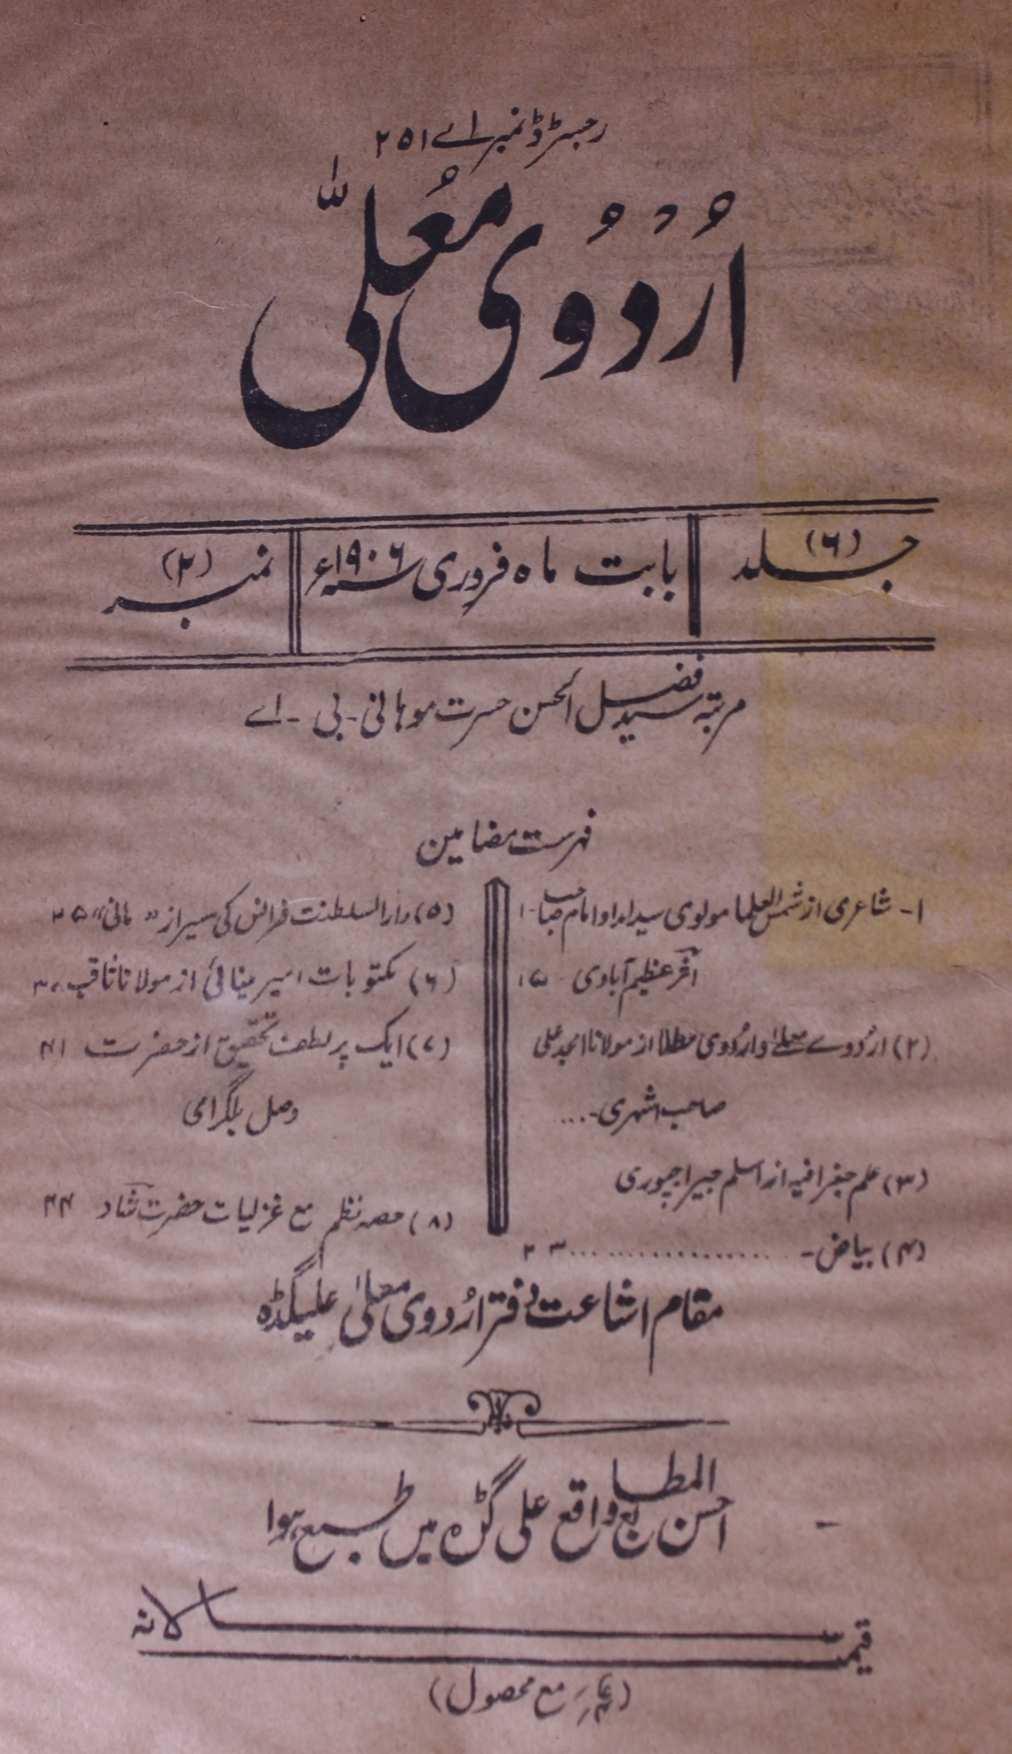 رجسٹرڈ نمبر اے ۲۵۱
اُرْدُوُی مُعلّی
جلد (۶)
بابت ماہ فروری سنہ ۱۹۰۶ء
نمبر (۲)
مرتبہ سید فضل الحسن حسرت موہانی - بی - اے
فہرست مضامین
۱- شاعری از شمس العلما مولوی سید امداد امام صاحب ۱-
اثر عظیم آبادی ۱۵
(۲) اردوے معلےٰ و اردوی مطلا از مولانا امجد علی
صاحب اشہری -...
(۳) علم جغرافیہ از اسلم جیراجپوری
(۴) بیاض - ................ ۲۳
(۵) دار السلطنت فرانس کی سیر از "مانی" ۲۵
(۶) مکتوبات امیر مینائی از مولانا ثاقب ۳۰
(۷) ایک پر لطف تحقیق از حضرت ۴۱
وصل بلگرامی
(۸) حصہ نظم مع غزلیات حضرت شاد ۴۴
مقام اشاعت دفتر اُردوی معلیٰ علیگڈہ
احسن المطابع واقع علی گڑہ میں طبع ہوا
قیمت سالانہ
(مع محصول)